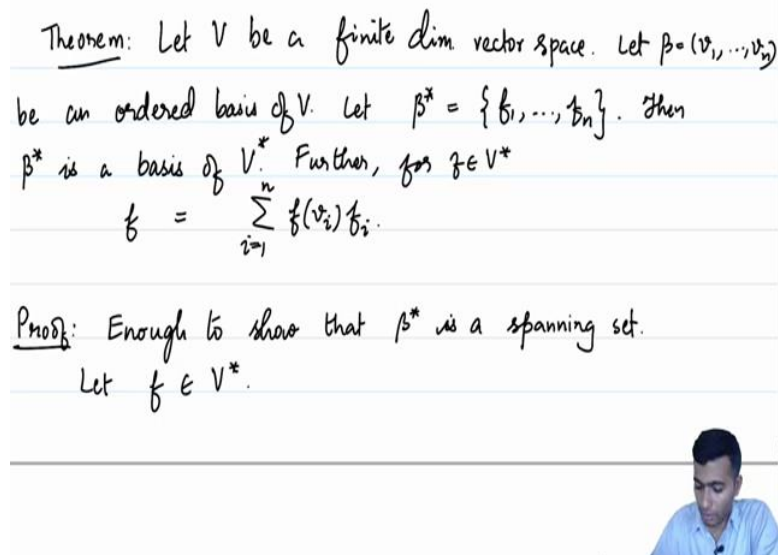 Theorem: Let V be a finite dim. vector space. Let β = (v₁, ..., vₙ)
be an ordered basis of V. Let β* = {f₁, ..., fₙ}. Then
β* is a basis of V*. Further, for f ∈ V*
f = ∑ᵢ₌₁ⁿ f(vᵢ) fᵢ.
Proof: Enough to show that β* is a spanning set.
Let f ∈ V*.